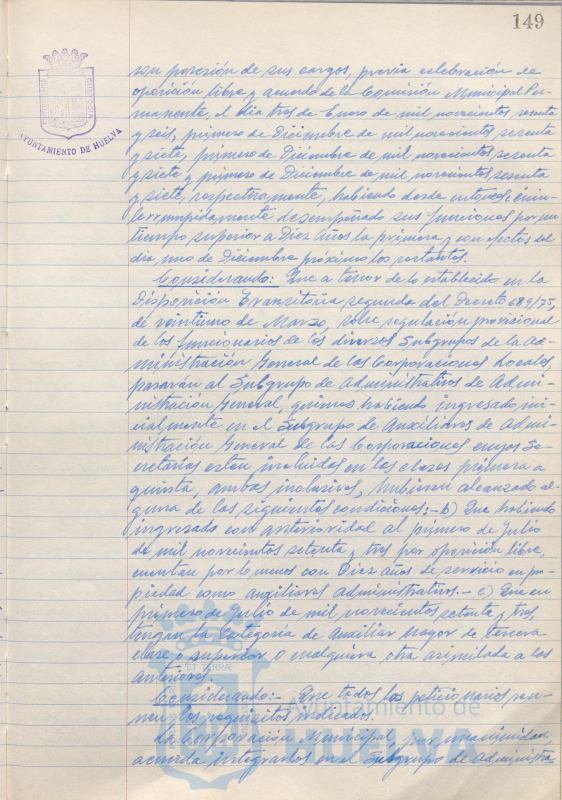 149
AYUNTAMIENTO DE HUELVA
posesión de sus cargos, previa celebración de
oposición libre y acuerdo de la Comisión Municipal Per-
manente, el día tres de Enero de mil novecientos sesenta
y seis, primero de Diciembre de mil novecientos sesenta
y siete, primero de Diciembre de mil novecientos sesenta
y siete y primero de Diciembre de mil novecientos sesenta
y siete, respectivamente, habiendo desde entonces é inin-
terrumpidamente desempeñado sus funciones por un
tiempo superior a Diez años la primera y con efectos del
día uno de Diciembre próximo los restantes.
Considerando: Que a tenor de lo establecido en la
Disposición Transitoria segunda del Decreto 689/75,
de veintiuno de Marzo, sobre regulación provisional
de los funcionarios de los diversos Subgrupos de la Ad-
ministración General de las Corporaciones Locales,
pasarán al Subgrupo de Administrativos de Admi-
nistración General, quienes habiendo ingresado ini-
cialmente en el Subgrupo de Auxiliares de Admi-
nistración General de las Corporaciones cuyas Se-
cretarias esten incluidas en las clases primera a
quinta, ambas inclusives, hubieren alcanzado al-
guna de las siguientes condiciones:- b) Que habiendo
ingresado con anterioridad al primero de Julio
de mil novecientos setenta y tres por oposición libre,
cuentan por lo menos con Diez años de servicio en pro-
piedad como auxiliares administrativos.- c) Que en
primero de julio de mil novecientos setenta y tres
tengan la Categoría de Auxiliar Mayor de tercera
clase o superior o cualquiera otra asimilada a las
anteriores.
Considerando:- Que todos los peticionarios reu-
nen los requisitos indicados.
La Corporación Municipal por unanimidad
acuerda integrarlos en el Subgrupo de Administra-
ET TERRÆ
Ayuntamiento de
HUELVA